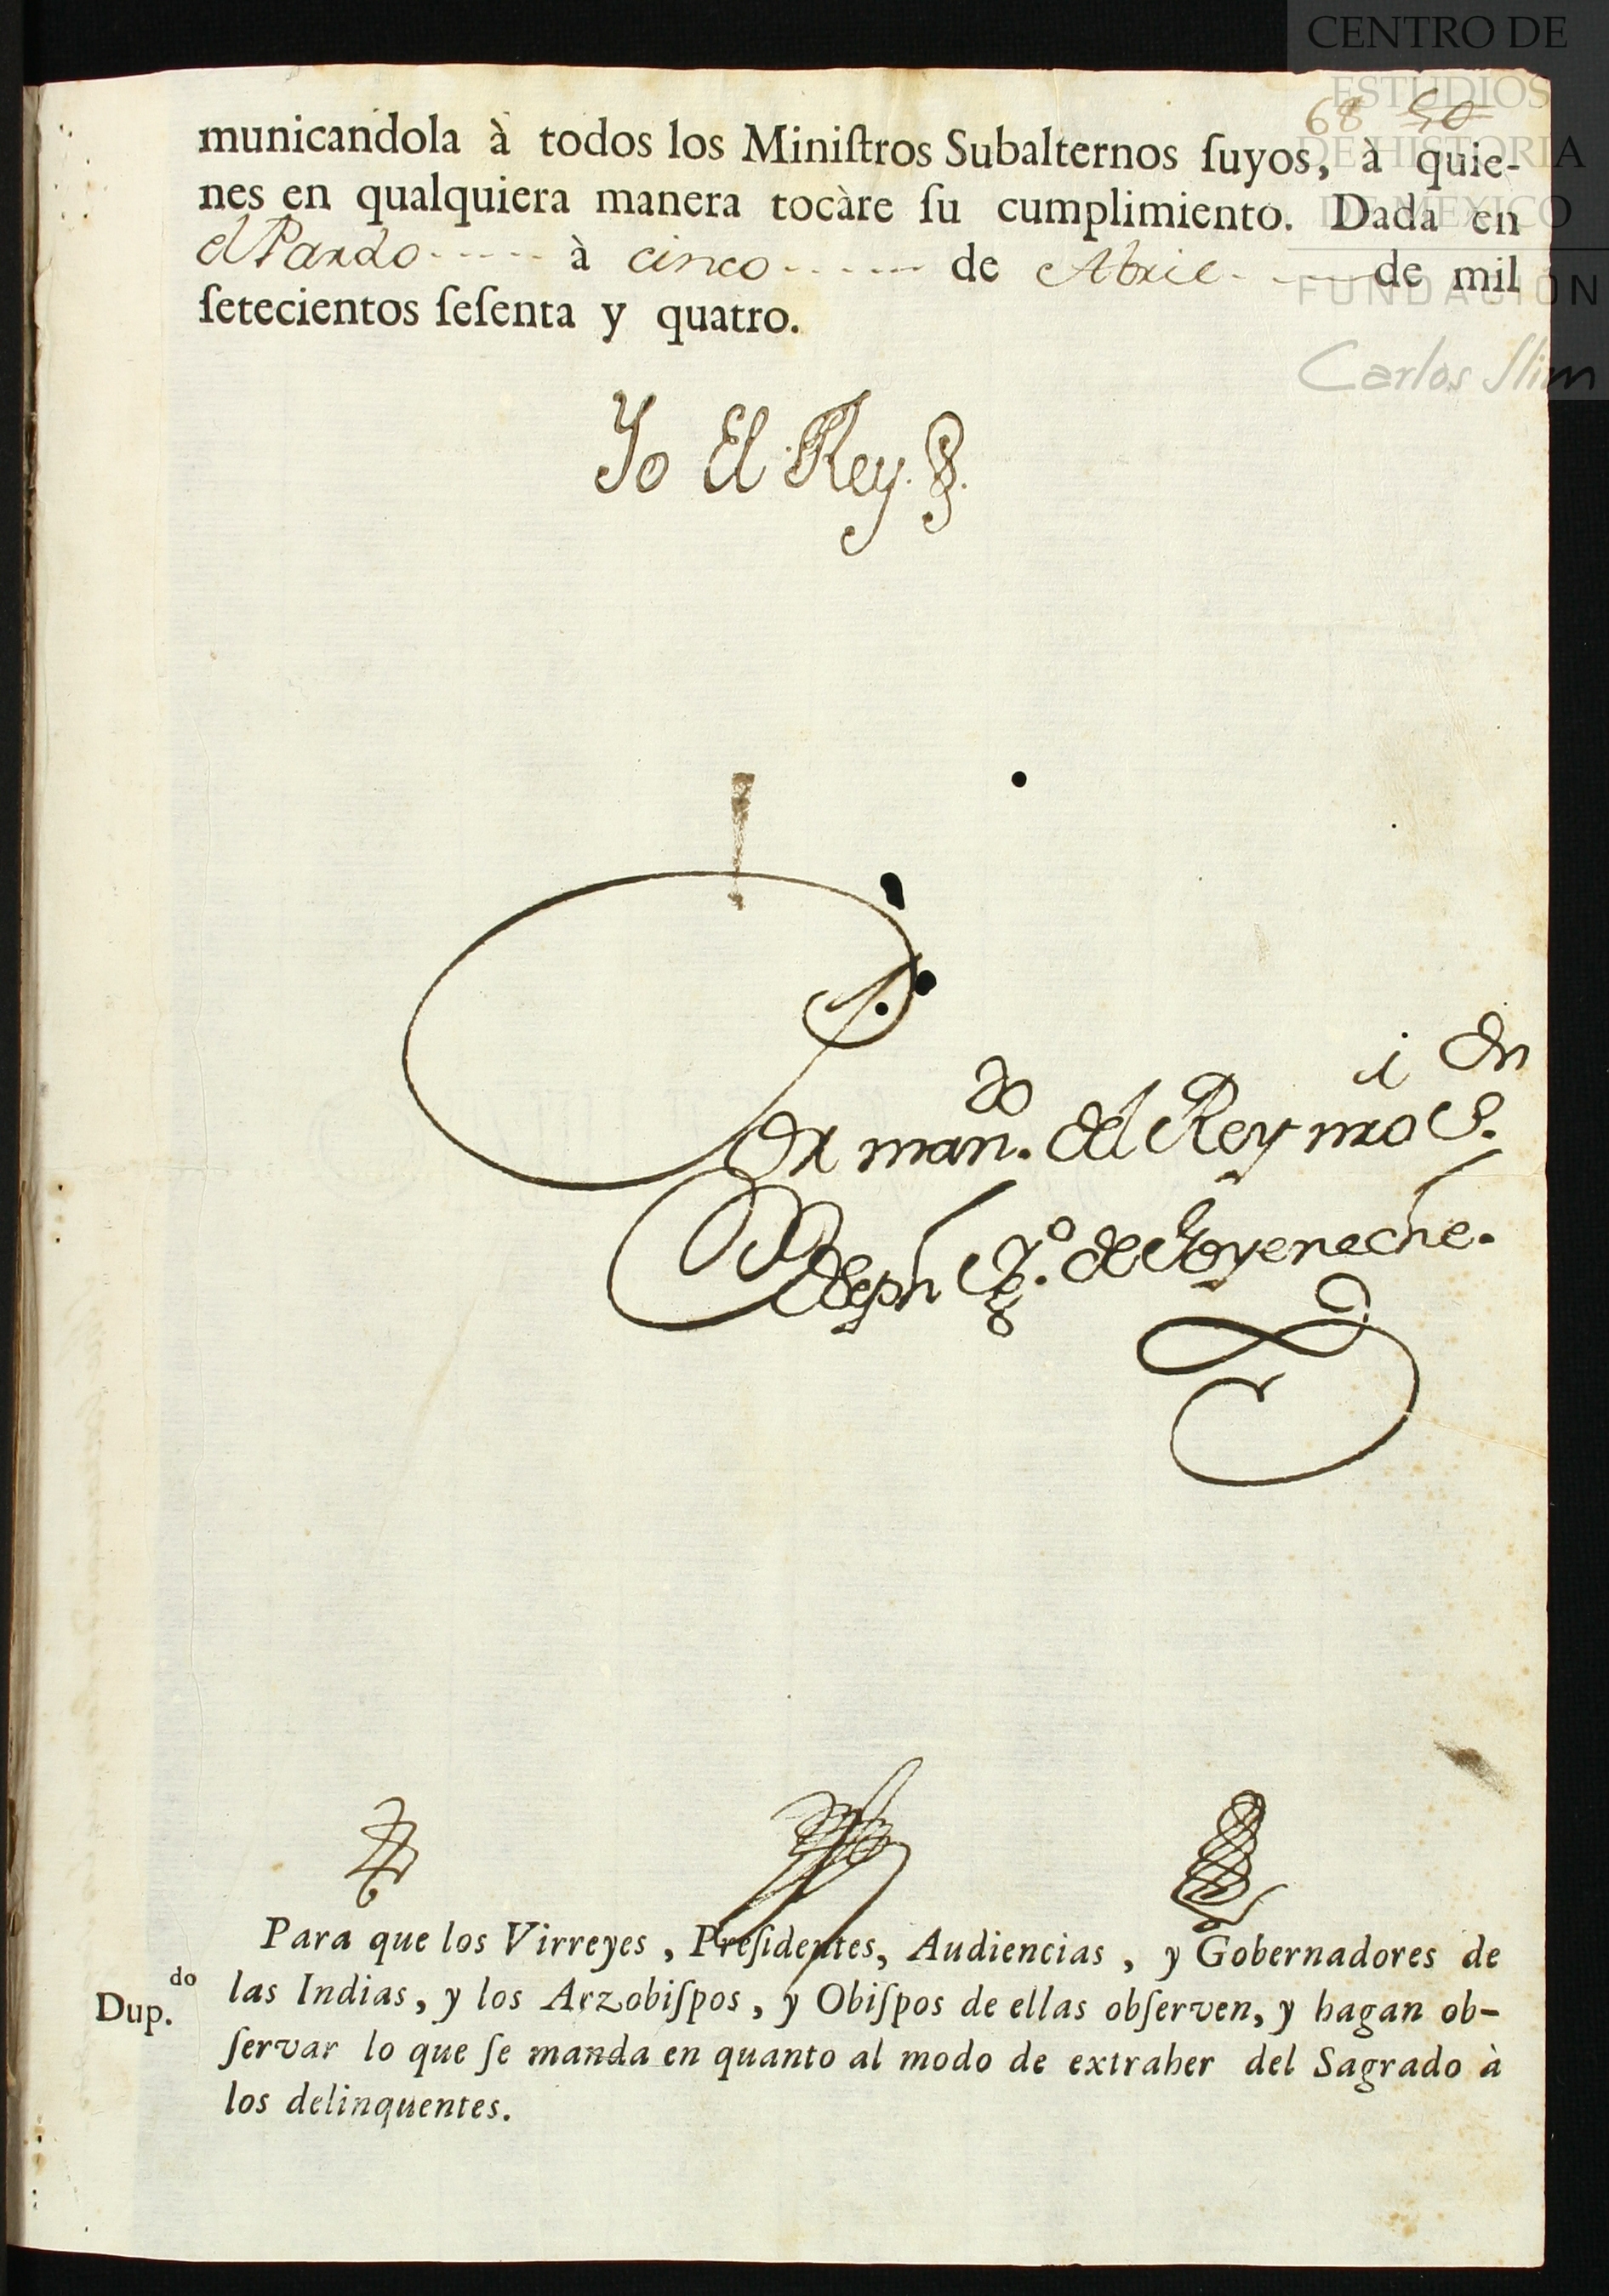 CENTRO DE
ESTUDIOS
DE HISTORIA
DE MEXICO
FUNDACIÓN
Carlos Slim
68 50
municandola à todos los Miniſtros Subalternos ſuyos, à quie-
nes en qualquiera manera tocàre ſu cumplimiento. Dada en
el Pardo à cinco de Abril de mil
ſetecientos ſeſenta y quatro.
Yo El Rey.
Por man.do del Rey nro S.
Joseph Ig.o de Goyeneche.
Para que los Virreyes, Preſidentes, Audiencias, y Gobernadores de
Dup.do las Indias, y los Arzobiſpos, y Obiſpos de ellas obſerven, y hagan ob-
ſervar lo que ſe manda en quanto al modo de extraher del Sagrado à
los delinquentes.